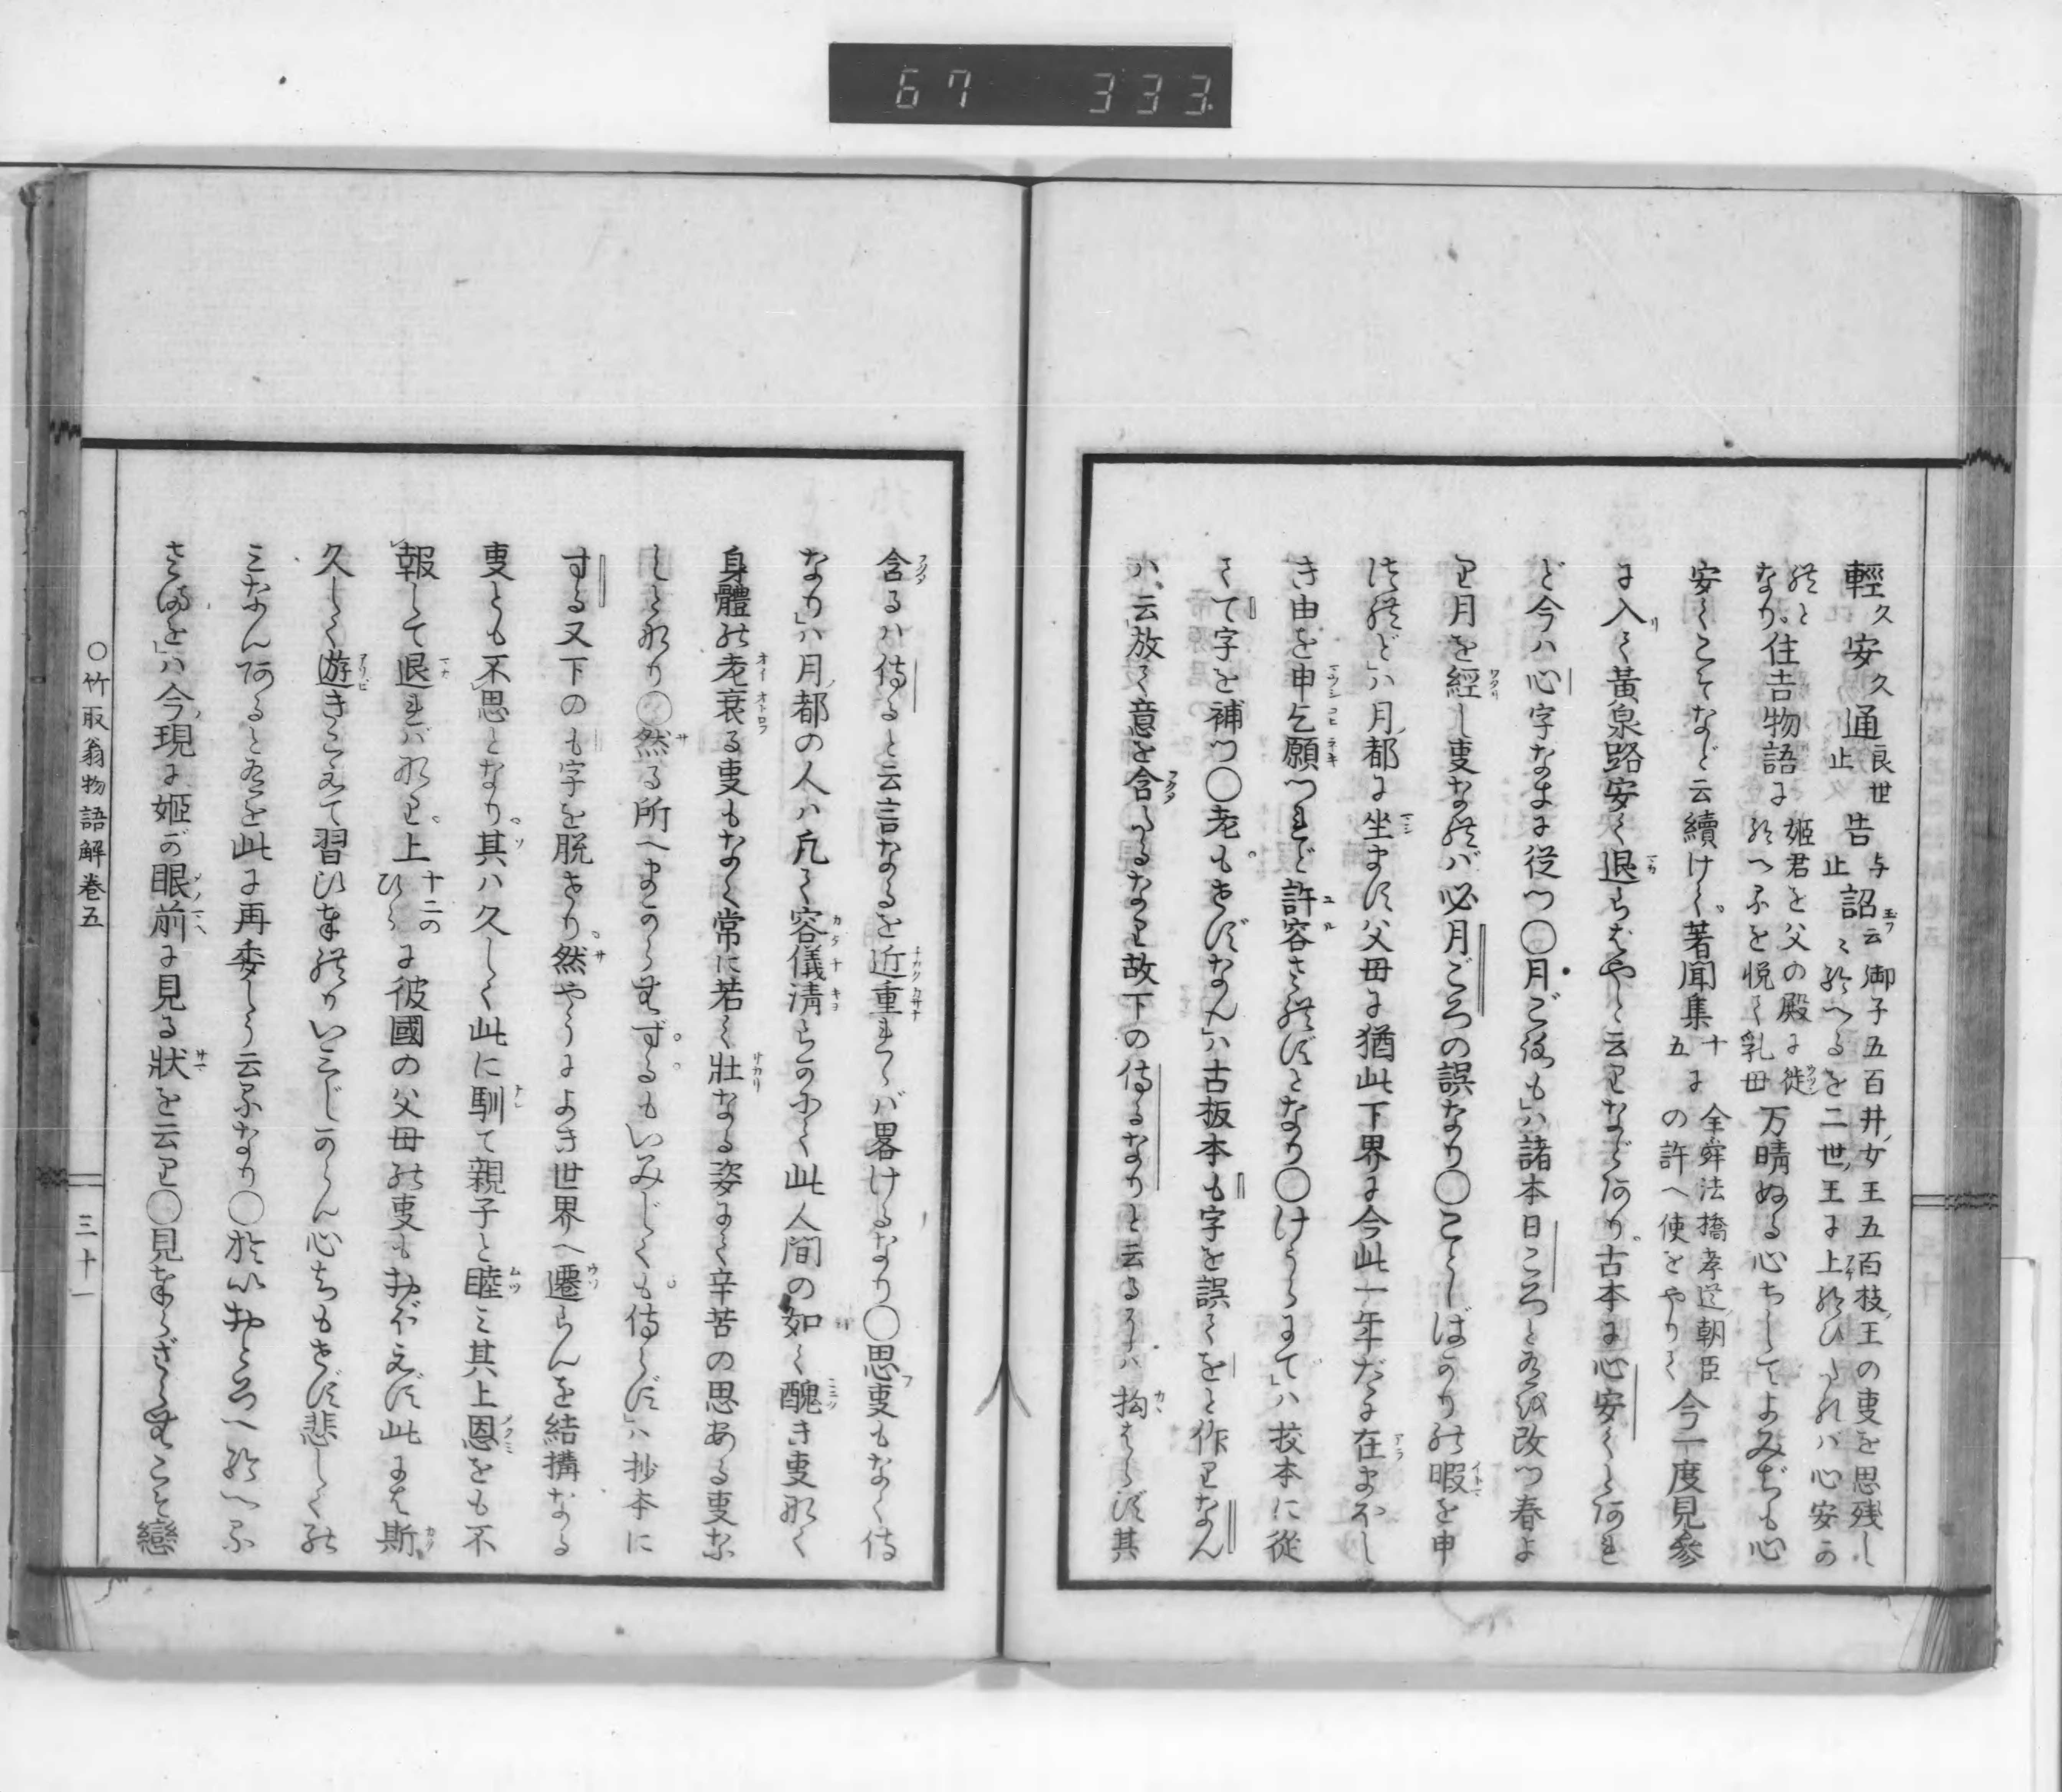 67 333
輕久安久通良世止告与止詔云ミ給へるを御子五百井ノ女王五百枝ノ王の叓を思残し
給と二世ノ王に上給ひたれバ心安か
なり。住吉物語に姬君を父の殿に徙給へふを悦て乳母万晴ぬる心ちしてよみぢも心
安くこそなど云續けく。著聞集十五に全舜法橋孝道朝臣の許へ使をやりて今一度見參
に入て黃泉路安く退らばやと云りなどあり。古本に心安くとあれ
ど今ハ心字なきに從つ〇月ごろも」ハ諸本日ころとあるを改つ春よ
り月を經し叓なれバ必月ごろの誤なり〇ことしばかりの暇を申
つれど」ハ月ノ都に坐ます父母に猶此下界に今此一年だに在まほし
き由を申乞願つれど許容されずとなり〇けうらにて」ハ挍本に從
てて字を補つ〇老もせずなん」ハ古板本も字を誤てをと作りなん
ハ、云放て意を含たるなり故下の侍るなりと云るにハ拘はらず其
含るハ侍ると云言なるを近重れゝバ畧けるなり〇思叓もなく侍
なり」ハ月ノ都の人ハ凡て容儀淸らかにて此人間の如く醜き叓なく
身體の老衰る叓もなく常に若く壯なる姿にて辛苦の思ある叓な
しとなり〇然る所へまからむずるもいみじくも侍らず」ハ抄本に
する又下のも字を脱せり。然やうによき世界へ遷らんを結構なる
叓とも不思となり。其ハ久しく此に馴て親子と睦ミ其上恩をも不
報して退ればなり。上十二のひらに彼國の父母の叓もおぼえず此にも斯
久しく遊きこえて習ひ奉れりいミじからん心ちもせず悲しくの
ミなんあるとあるを此に再委しう云ふなり〇於いおとろへ給へふ
さまを」ハ今ノ現に姬が眼ノ前に見る狀を云り〇見奉らざらむこそ戀
〇竹取翁物語解卷五
三十一